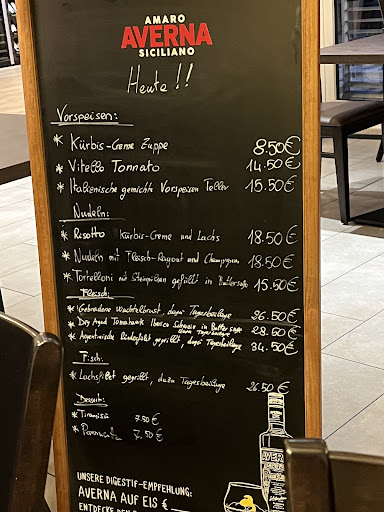 AMARO
AVERNA
SICILIANO
Heute!!
Vorspeisen:
* Kürbis-Creme Zuppe 8.50€
* Vitello Tonnato 14.50€
* Italienische gemichte Vorspeisen Teller 15.50€
Nudeln:
* Risotto Kürbis-Creme und Lachs 18.50€
* Nudeln mit Fleisch-Ragout und Champignon 18.50€
* Tortelloni mit Steinpilzen gefüllt in Butter 15.50€
Fleisch:
* Gebratene Wachtelbrust, dazu Tagesbeilage 26.50€
* Dry Aged Tomahawk Iberico Schwein in Butter 28.50€
dazu Tagesbeilage
* Argentinische Rinderfilet gegrillt, dazu Tagesbeilage 34.50€
Fisch:
* Lachsfilet gegrillt, dazu Tagesbeilage 26.50€
Dessert:
* Tiramisù 7.50€
* 7.50€
UNSERE DIGESTIF-EMPFEHLUNG:
AVERNA AUF EIS €
ENTDECKE DEN